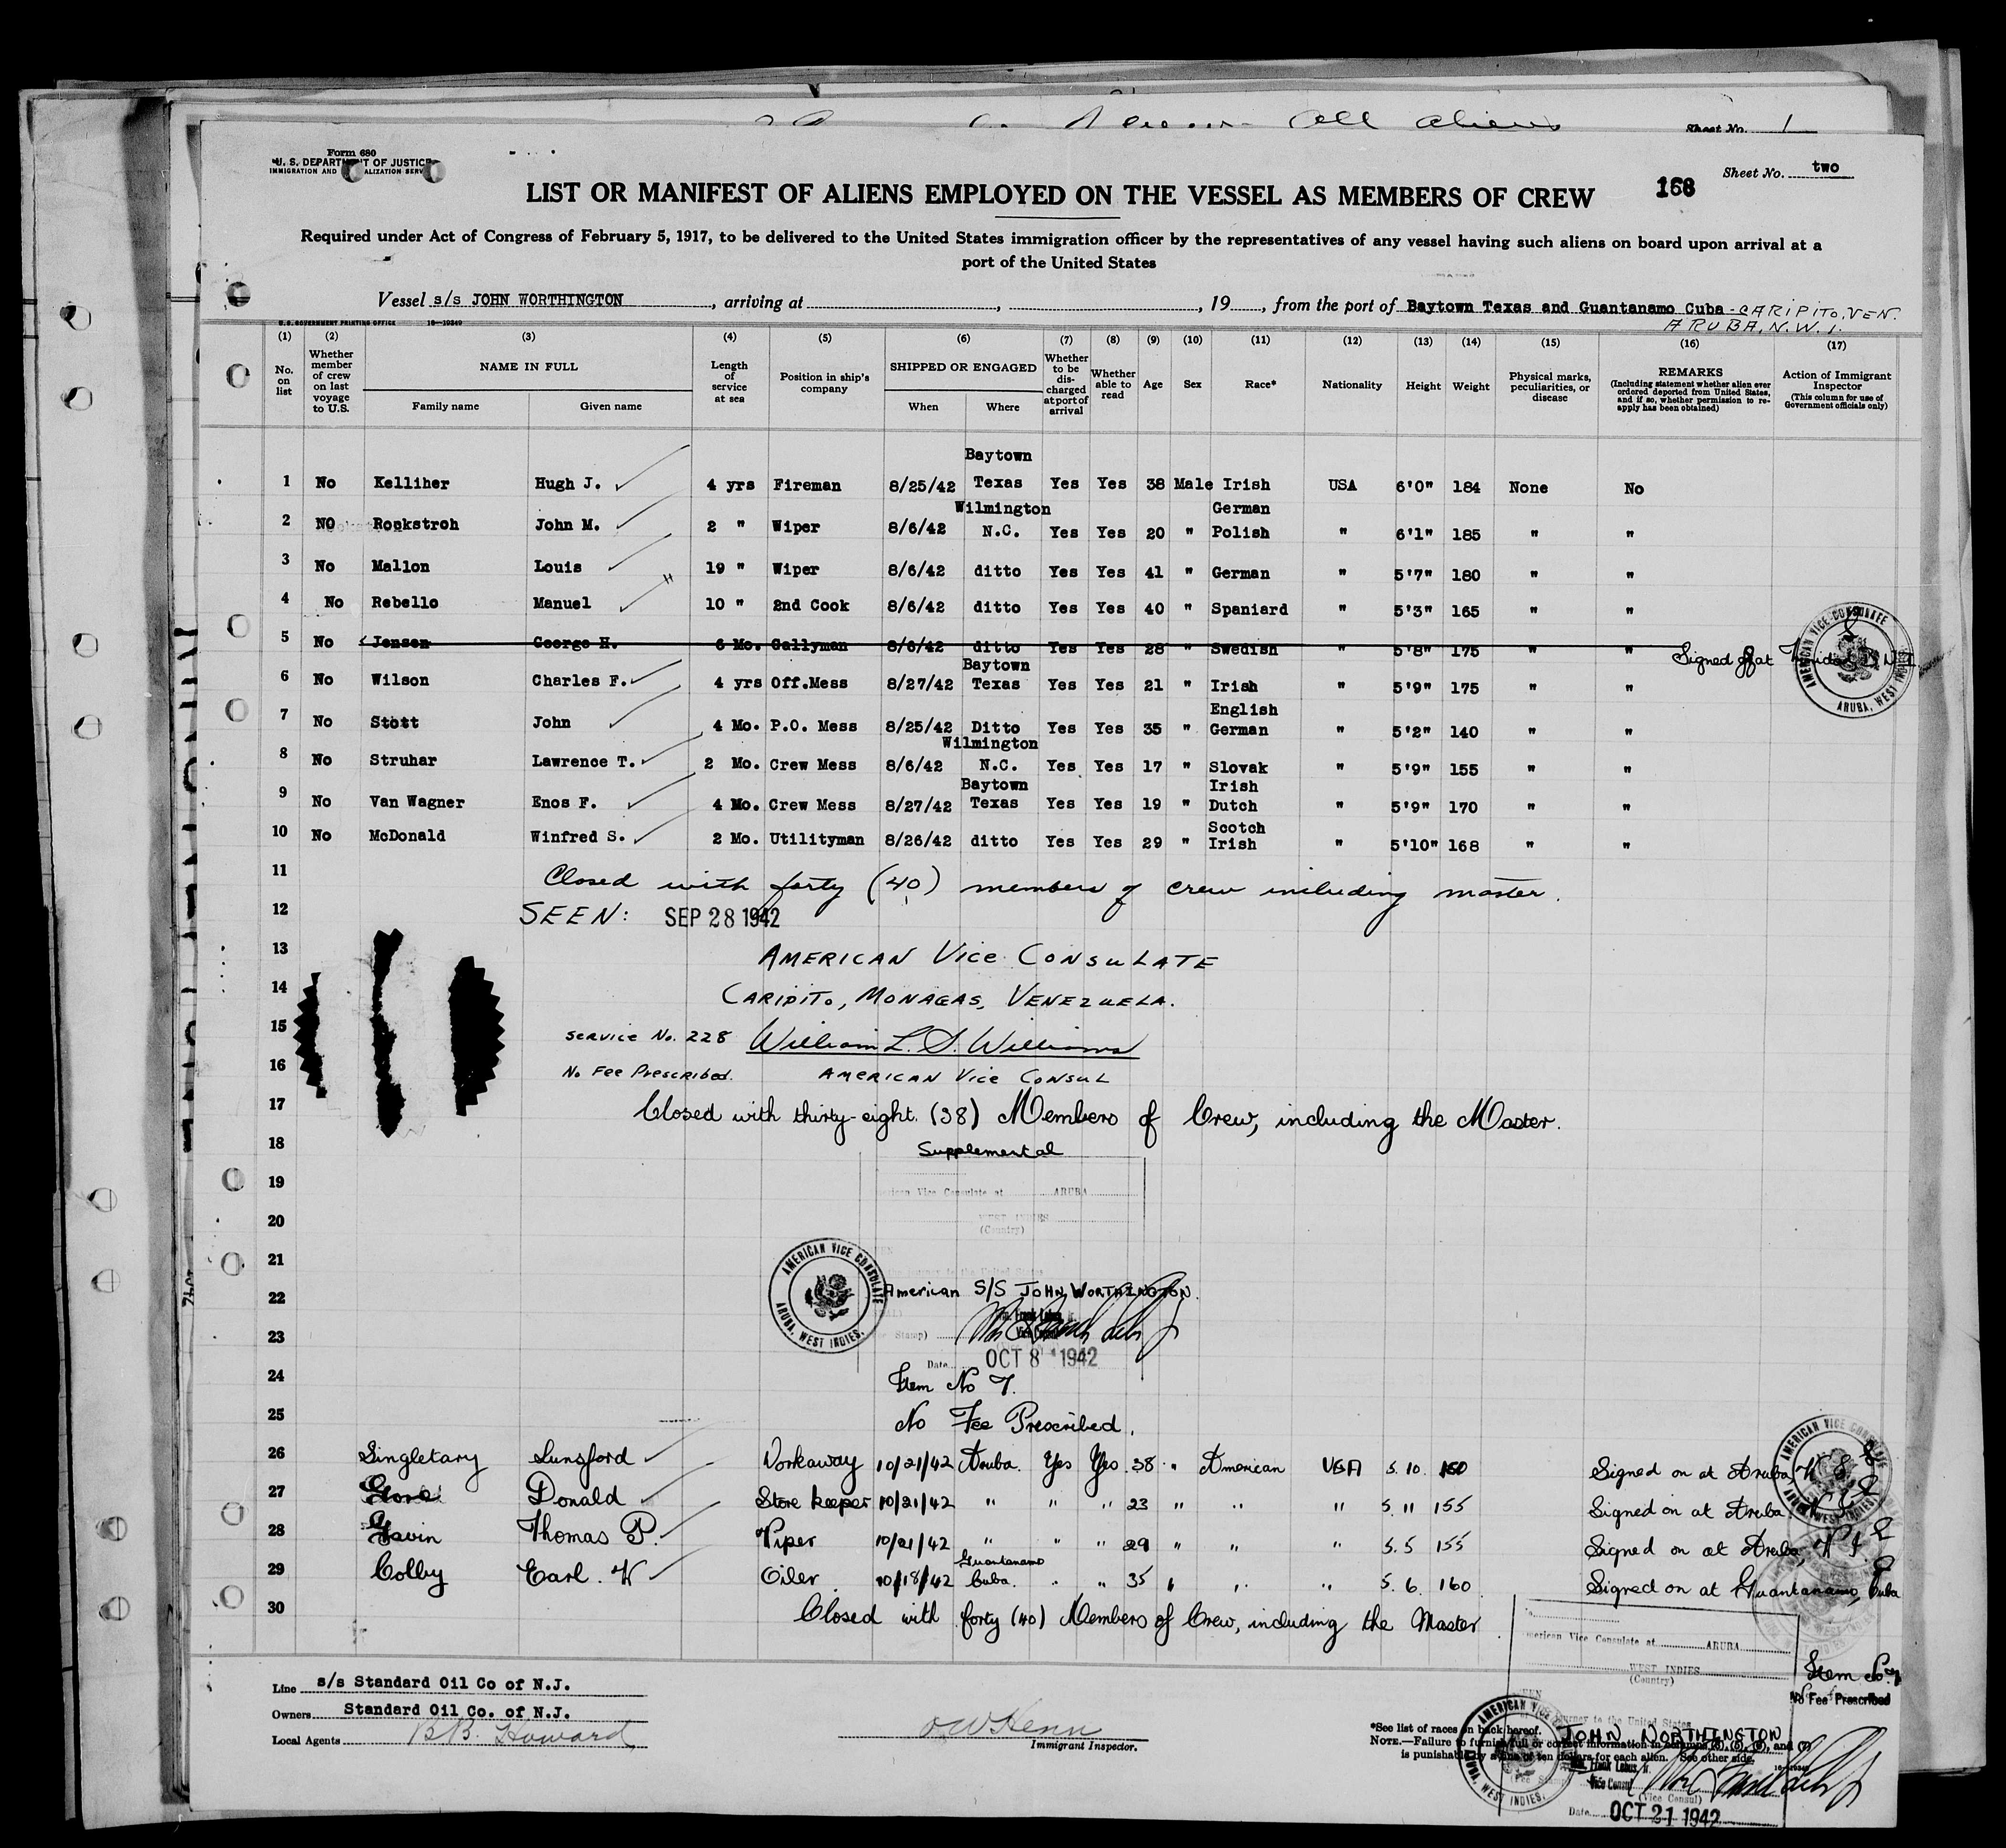 Sheet No. 1
all aliens
Form 680
U. S. DEPARTMENT OF JUSTICE
IMMIGRATION AND NATURALIZATION SERVICE
Sheet No. two
168
LIST OR MANIFEST OF ALIENS EMPLOYED ON THE VESSEL AS MEMBERS OF CREW
Required under Act of Congress of February 5, 1917, to be delivered to the United States immigration officer by the representatives of any vessel having such aliens on board upon arrival at a
port of the United States
Vessel s/s JOHN WORTHINGTON, arriving at , , 19 , from the port of Baytown Texas and Guantanamo Cuba - CARIPITO, VEN.
ARUBA, N.W.I.
U.S. GOVERNMENT PRINTING OFFICE 16—10349
(1) (2) (3) (4) (5) (6) (7) (8) (9) (10) (11) (12) (13) (14) (15) (16) (17)
No. on list
Whether member of crew on last voyage to U.S.
NAME IN FULL
Family name
Given name
Length of service at sea
Position in ship's company
SHIPPED OR ENGAGED
When
Where
Whether to be discharged at port of arrival
Whether able to read
Age
Sex
Race*
Nationality
Height
Weight
Physical marks, peculiarities, or disease
REMARKS
(Including statement whether alien ever ordered deported from United States, and if so, whether permission to reapply has been obtained)
Action of Immigrant Inspector
(This column for use of Government officials only)
1 No Kelliher Hugh J. 4 yrs Fireman 8/25/42 Baytown Texas Yes Yes 38 Male Irish USA 6'0" 184 None No
2 NO Rockstroh John M. 2 " Wiper 8/6/42 Wilmington N.C. Yes Yes 20 " German Polish " 6'1" 185 " "
3 No Mallon Louis 19 " Wiper 8/6/42 ditto Yes Yes 41 " German " 5'7" 180 " "
4 No Rebello Manuel 10 " 2nd Cook 8/6/42 ditto Yes Yes 40 " Spaniard " 5'3" 165 " "
5 No Jensen George H. 6 Mo. Gallyman 8/6/42 ditto Yes Yes 28 " Swedish " 5'8" 175 " " Signed off at
AMERICAN VICE CONSULATE ARUBA, WEST INDIES
6 No Wilson Charles F. 4 yrs Off.Mess 8/27/42 Baytown Texas Yes Yes 21 " Irish " 5'9" 175 " "
7 No Stott John 4 Mo. P.O. Mess 8/25/42 Ditto Yes Yes 35 " English German " 5'2" 140 " "
8 No Struhar Lawrence T. 2 Mo. Crew Mess 8/6/42 Wilmington N.C. Yes Yes 17 " Slovak " 5'9" 155 " "
9 No Van Wagner Enos F. 4 Mo. Crew Mess 8/27/42 Baytown Texas Yes Yes 19 " Irish Dutch " 5'9" 170 " "
10 No McDonald Winfred S. 2 Mo. Utilityman 8/26/42 ditto Yes Yes 29 " Scotch Irish " 5'10" 168 " "
11 Closed with forty (40) members of crew including master.
12 SEEN: SEP 28 1942
13 AMERICAN VICE CONSULATE
14 CARIPITO, MONAGAS, VENEZUELA.
15 Service No. 228 William L. S. Williams
16 No Fee Prescribed. AMERICAN VICE CONSUL
17 Closed with thirty-eight (38) Members of Crew, including the Master.
18 Supplemental
19 American Vice Consulate at ARUBA
20 WEST INDIES
(Country)
21
AMERICAN VICE CONSULATE ARUBA, WEST INDIES.
22 American S/S JOHN WORTHINGTON.
23 Vice Consul
Date OCT 8 1942
24 Item No 7.
25 No Fee Prescribed.
26 Singletary Lunsford Workaway 10/21/42 Aruba. Yes Yes 38 " American USA 5. 10. 160 Signed on at Aruba
27 Donald Store keeper 10/21/42 " " " 23 " " " 5. 11 155 Signed on at Aruba
28 Gavin Thomas P. Wiper 10/21/42 " " " 29 " " " 5. 5 155 Signed on at Aruba,
29 Colby Earl. W Oiler 10/18/42 Guantanamo Cuba. " " 35 " " " 5. 6. 160 Signed on at Guantanamo, Cuba
30 Closed with forty (40) Members of Crew, including the Master
American Vice Consulate at ARUBA
WEST INDIES
(Country)
Item No. 7
No Fee Prescribed
Line s/s Standard Oil Co of N.J.
Owners Standard Oil Co. of N.J.
Local Agents B.B. Howard
Immigrant Inspector.
journey to the United States
JOHN WORTHINGTON
*See list of races on back hereof.
NOTE.—Failure to furnish full or correct information in columns (3), (5), (6), and (7)
is punishable by a fine of ten dollars for each alien. See other side.
16—10349
AMERICAN VICE CONSULATE ARUBA, WEST INDIES.
Frank Lobus, Jr.
Vice Consul
(Vice Consul)
Date OCT 21 1942